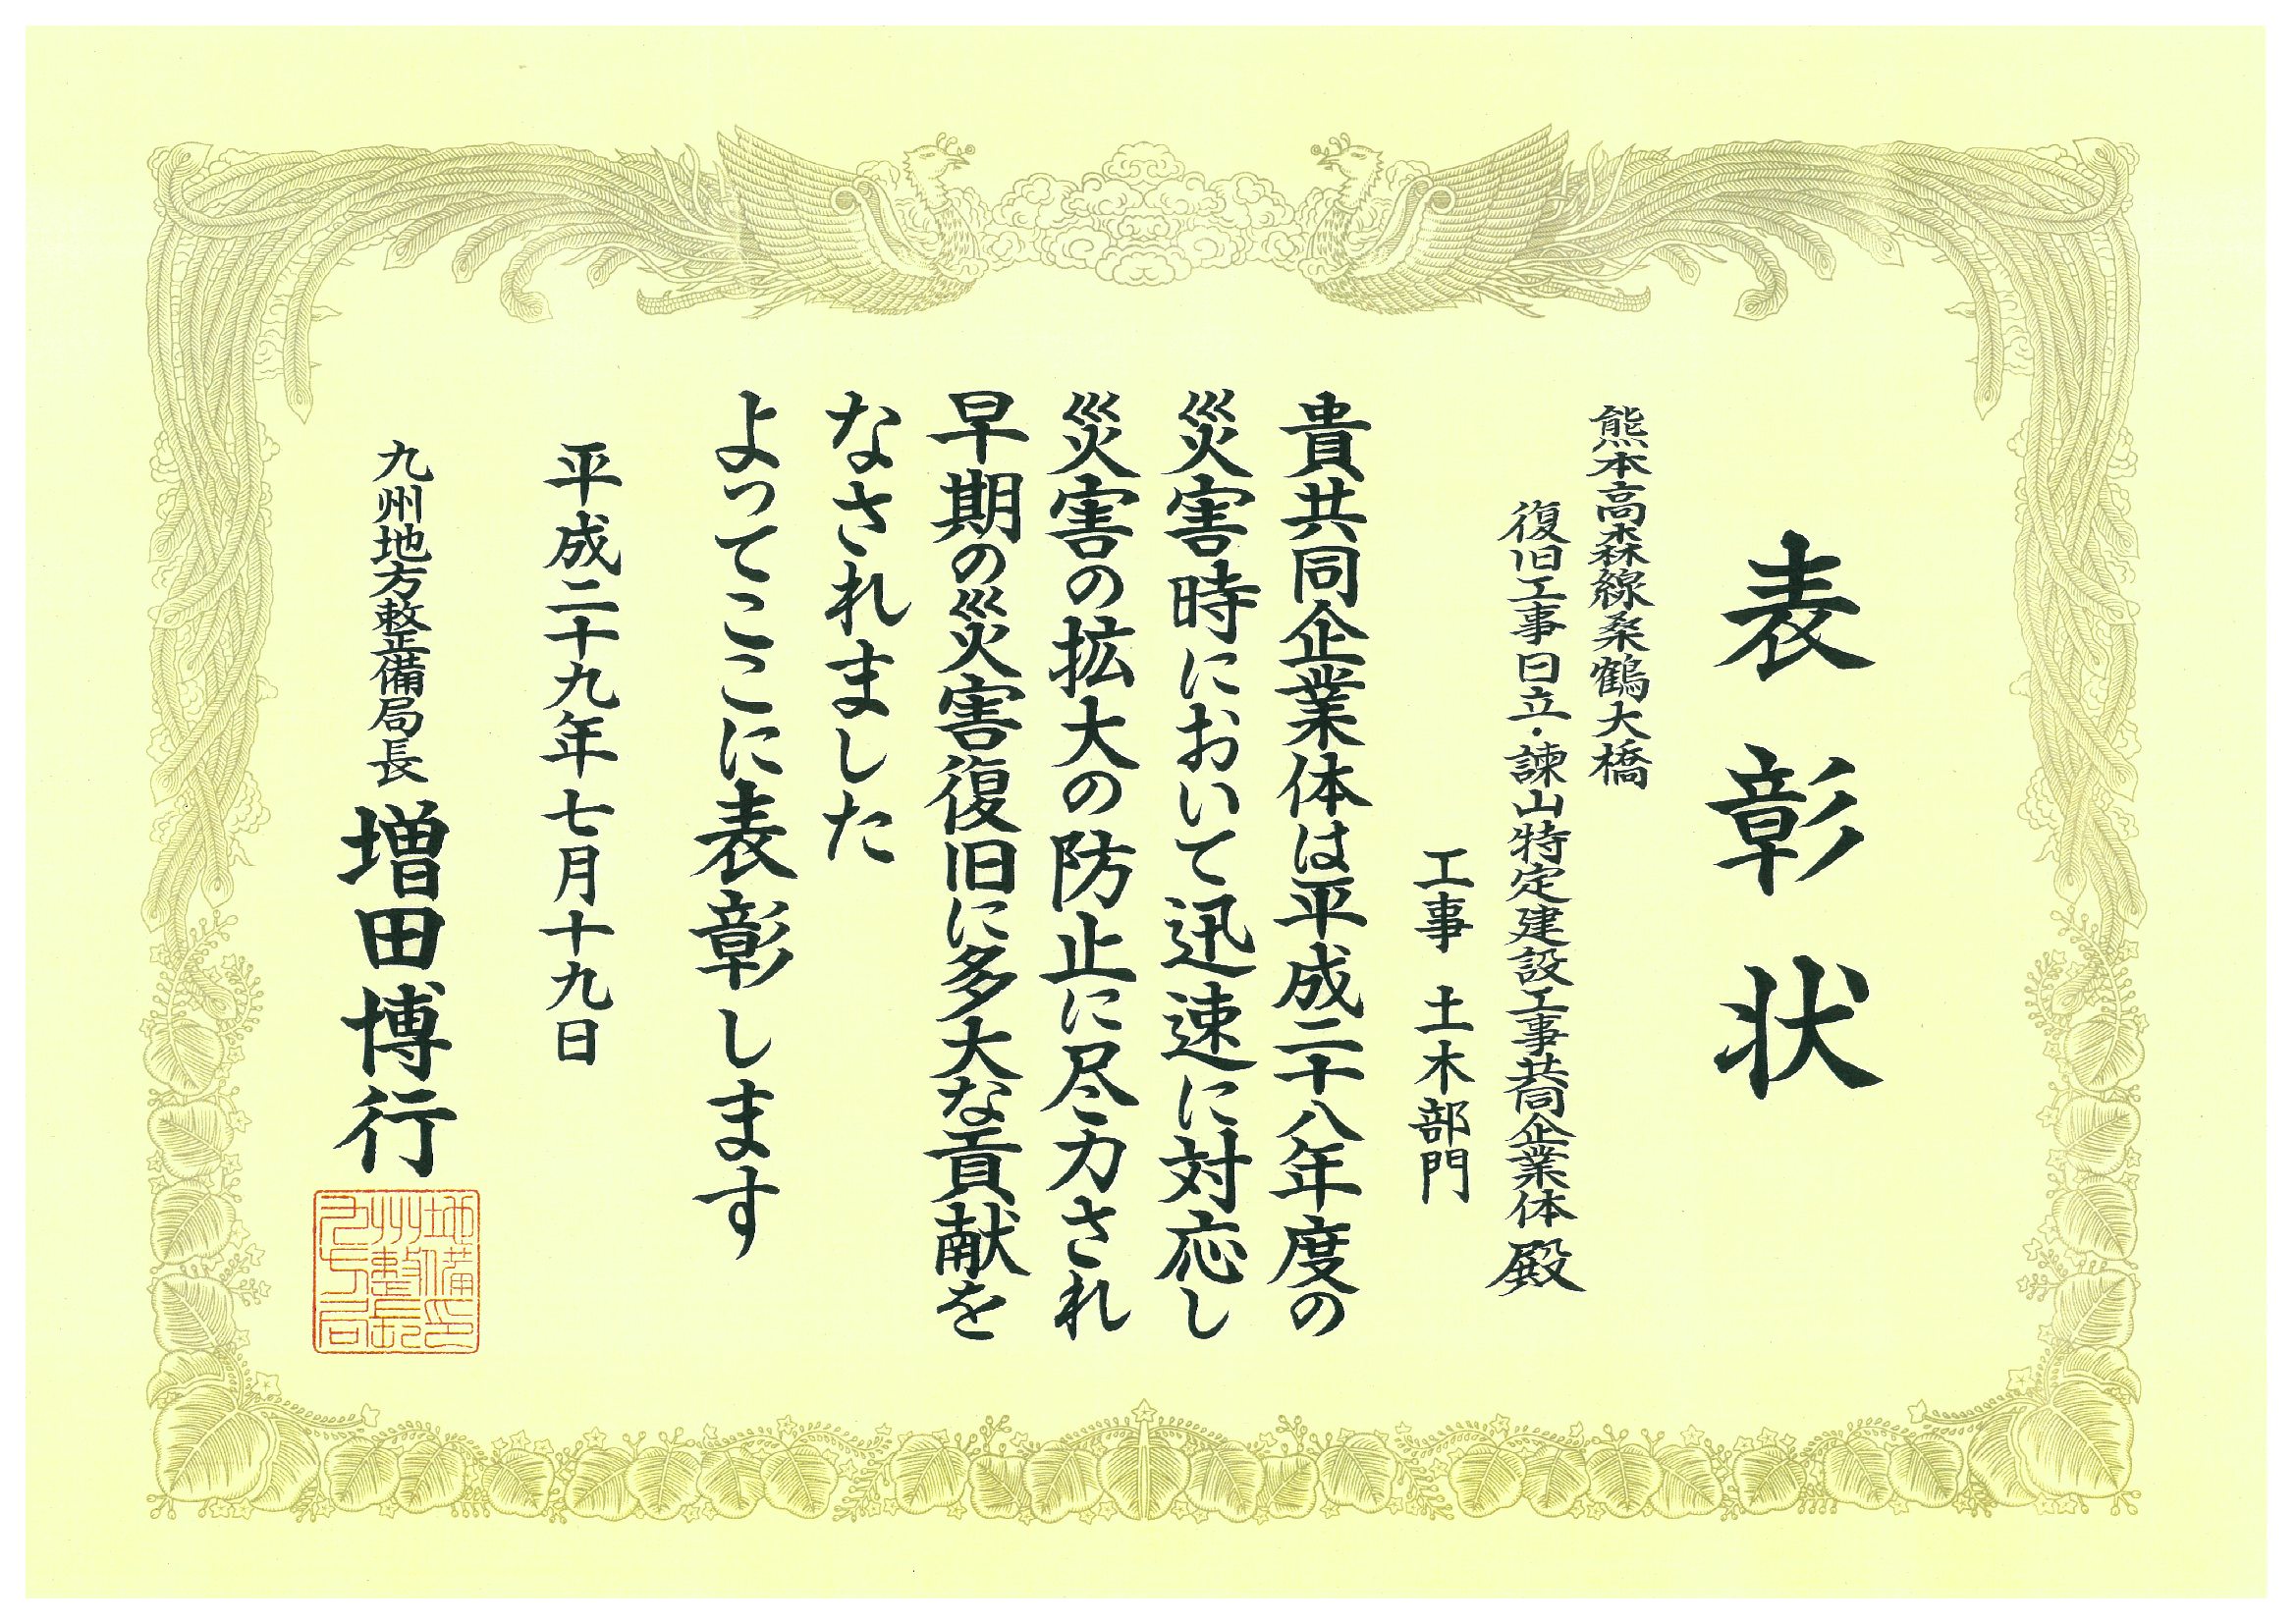 表彰状
熊本高森線桑鶴大橋
復旧工事日立・諫山特定建設工事共同企業体 殿
工事 土木部門
貴共同企業体は平成二十八年度の
災害時において迅速に対応し
災害の拡大の防止に尽力され
早期の災害復旧に多大な貢献を
なされました
よってここに表彰します
平成二十九年七月十九日
九州地方整備局長 増田博行
九州地方整備局長印